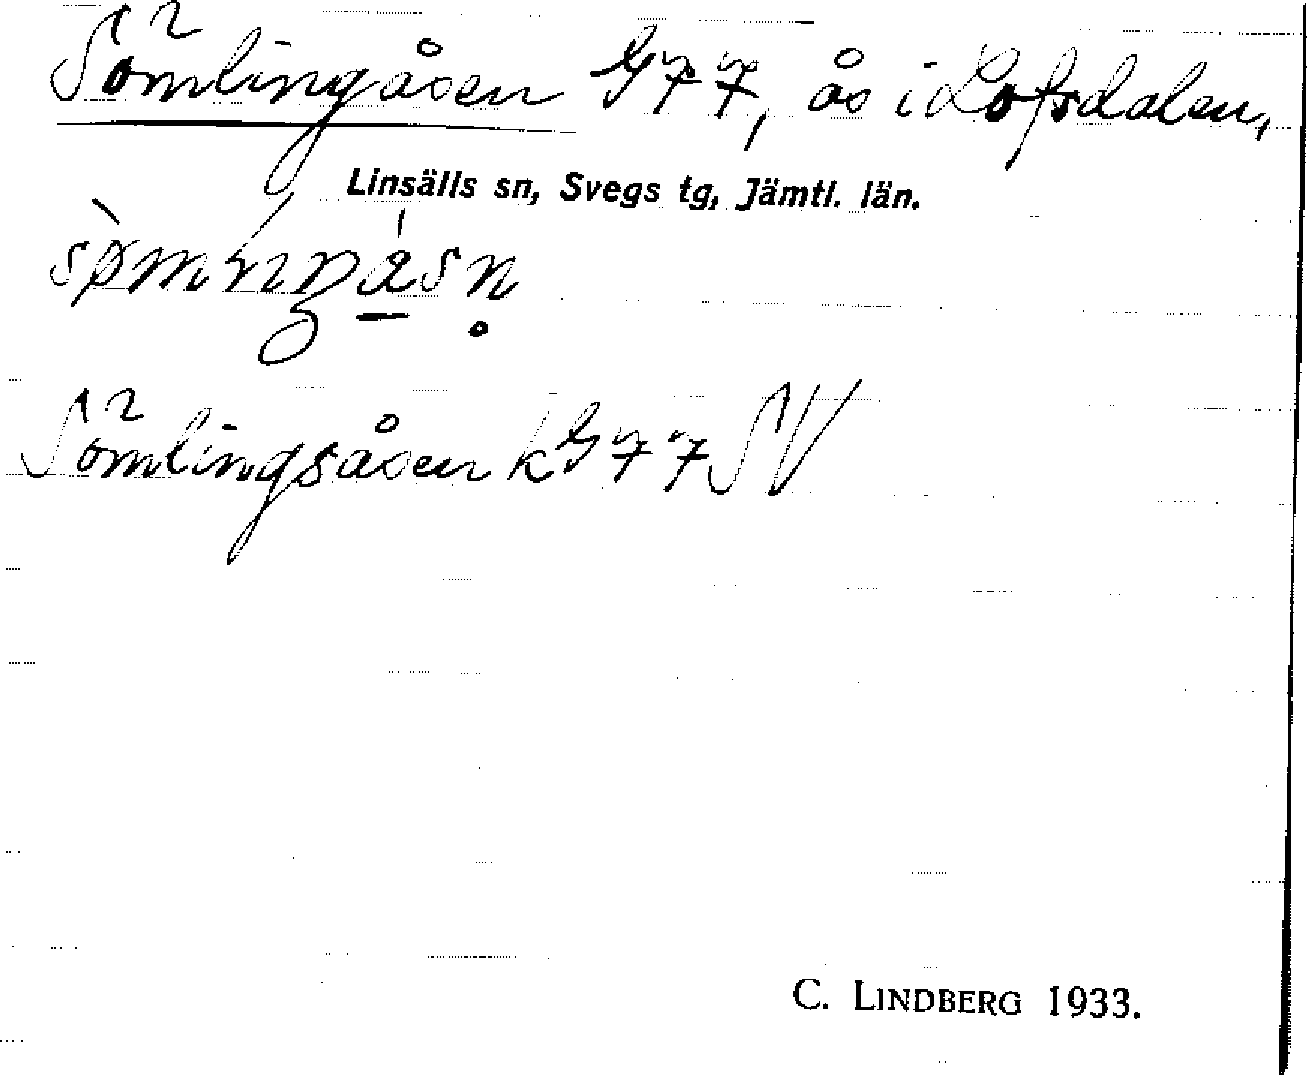 Sömlingåsen G77, ås i Lofsdalen,
Linsälls sn, Svegs tg, Jämtl. län.
Sömlingsåsen kG77SV
C. LINDBERG 1933.